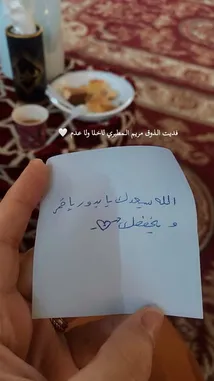 فديت الذوق مريم المطيري لاخلا ولا عدم 🤍
الله يسعدك يا بدور يا قمر
و يحفظك